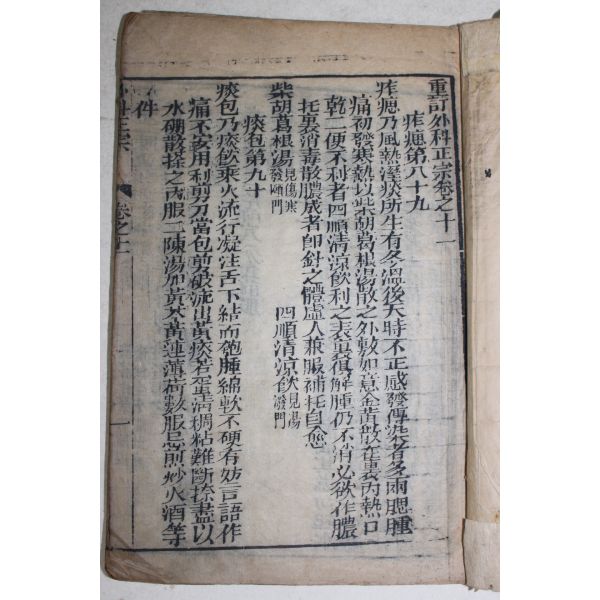 重訂外科正宗卷之十一
痄腮第八十九
痄腮乃風熱濕痰所生有冬溫後天時不正感發傳染者多兩腮腫
痛初發寒熱以柴胡葛根湯散之外敷如意金黃散在裏內熱口
乾二便不利者四順清涼飲利之表裏俱解腫仍不消必欲作膿
托裏消毒散膿成者即針之體虛人兼服補托自愈
柴胡葛根湯見傷寒發頤門 四順清涼飲見湯潑門
痰包第九十
痰包乃痰飲乘火流行凝注舌下結而匏腫綿軟不硬有妨言語作
痛不安用利剪刀當包剪破流出黃痰若蛋清稠粘難斷捺盡以
水硼散搽之內服二陳湯加黃芩黃連薄荷數服忌煎炒火酒等
件
外科正宗 卷之十一 一